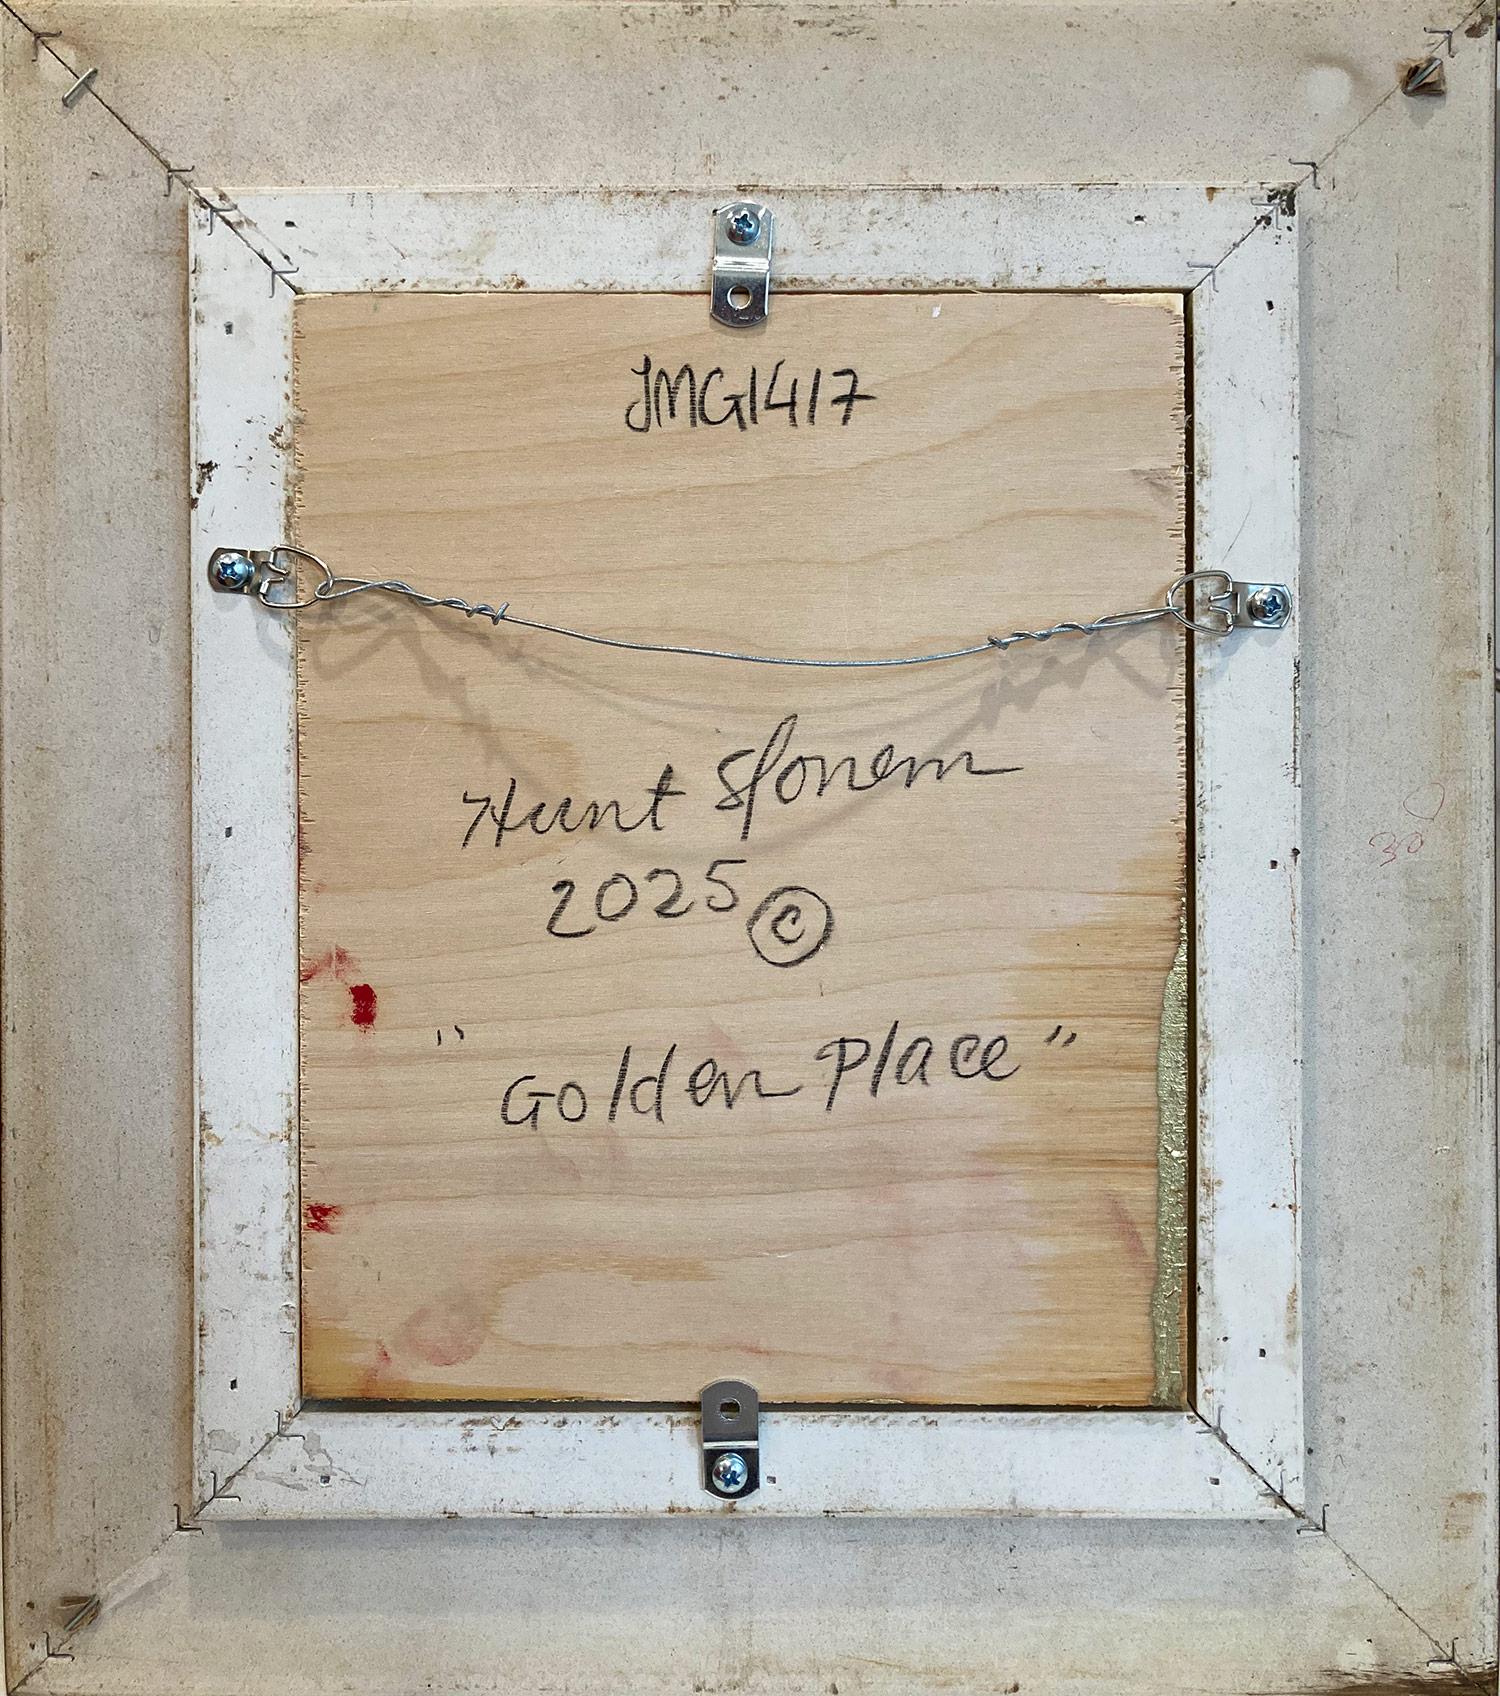 JMG1417
Hunt Slonem
2025 ©
"Golden Place"
30